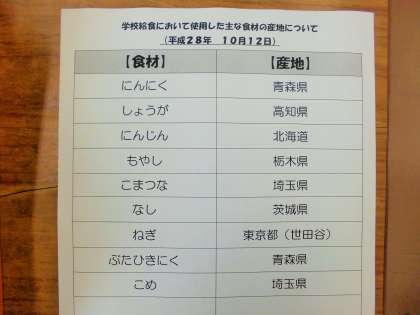 学校給食において使用した主な食材の産地について
（平成２８年　１０月１２日）
【食材】 【産地】
にんにく 青森県
しょうが 高知県
にんじん 北海道
もやし 栃木県
こまつな 埼玉県
なし 茨城県
ねぎ 東京都（世田谷）
ぶたひきにく 青森県
こめ 埼玉県